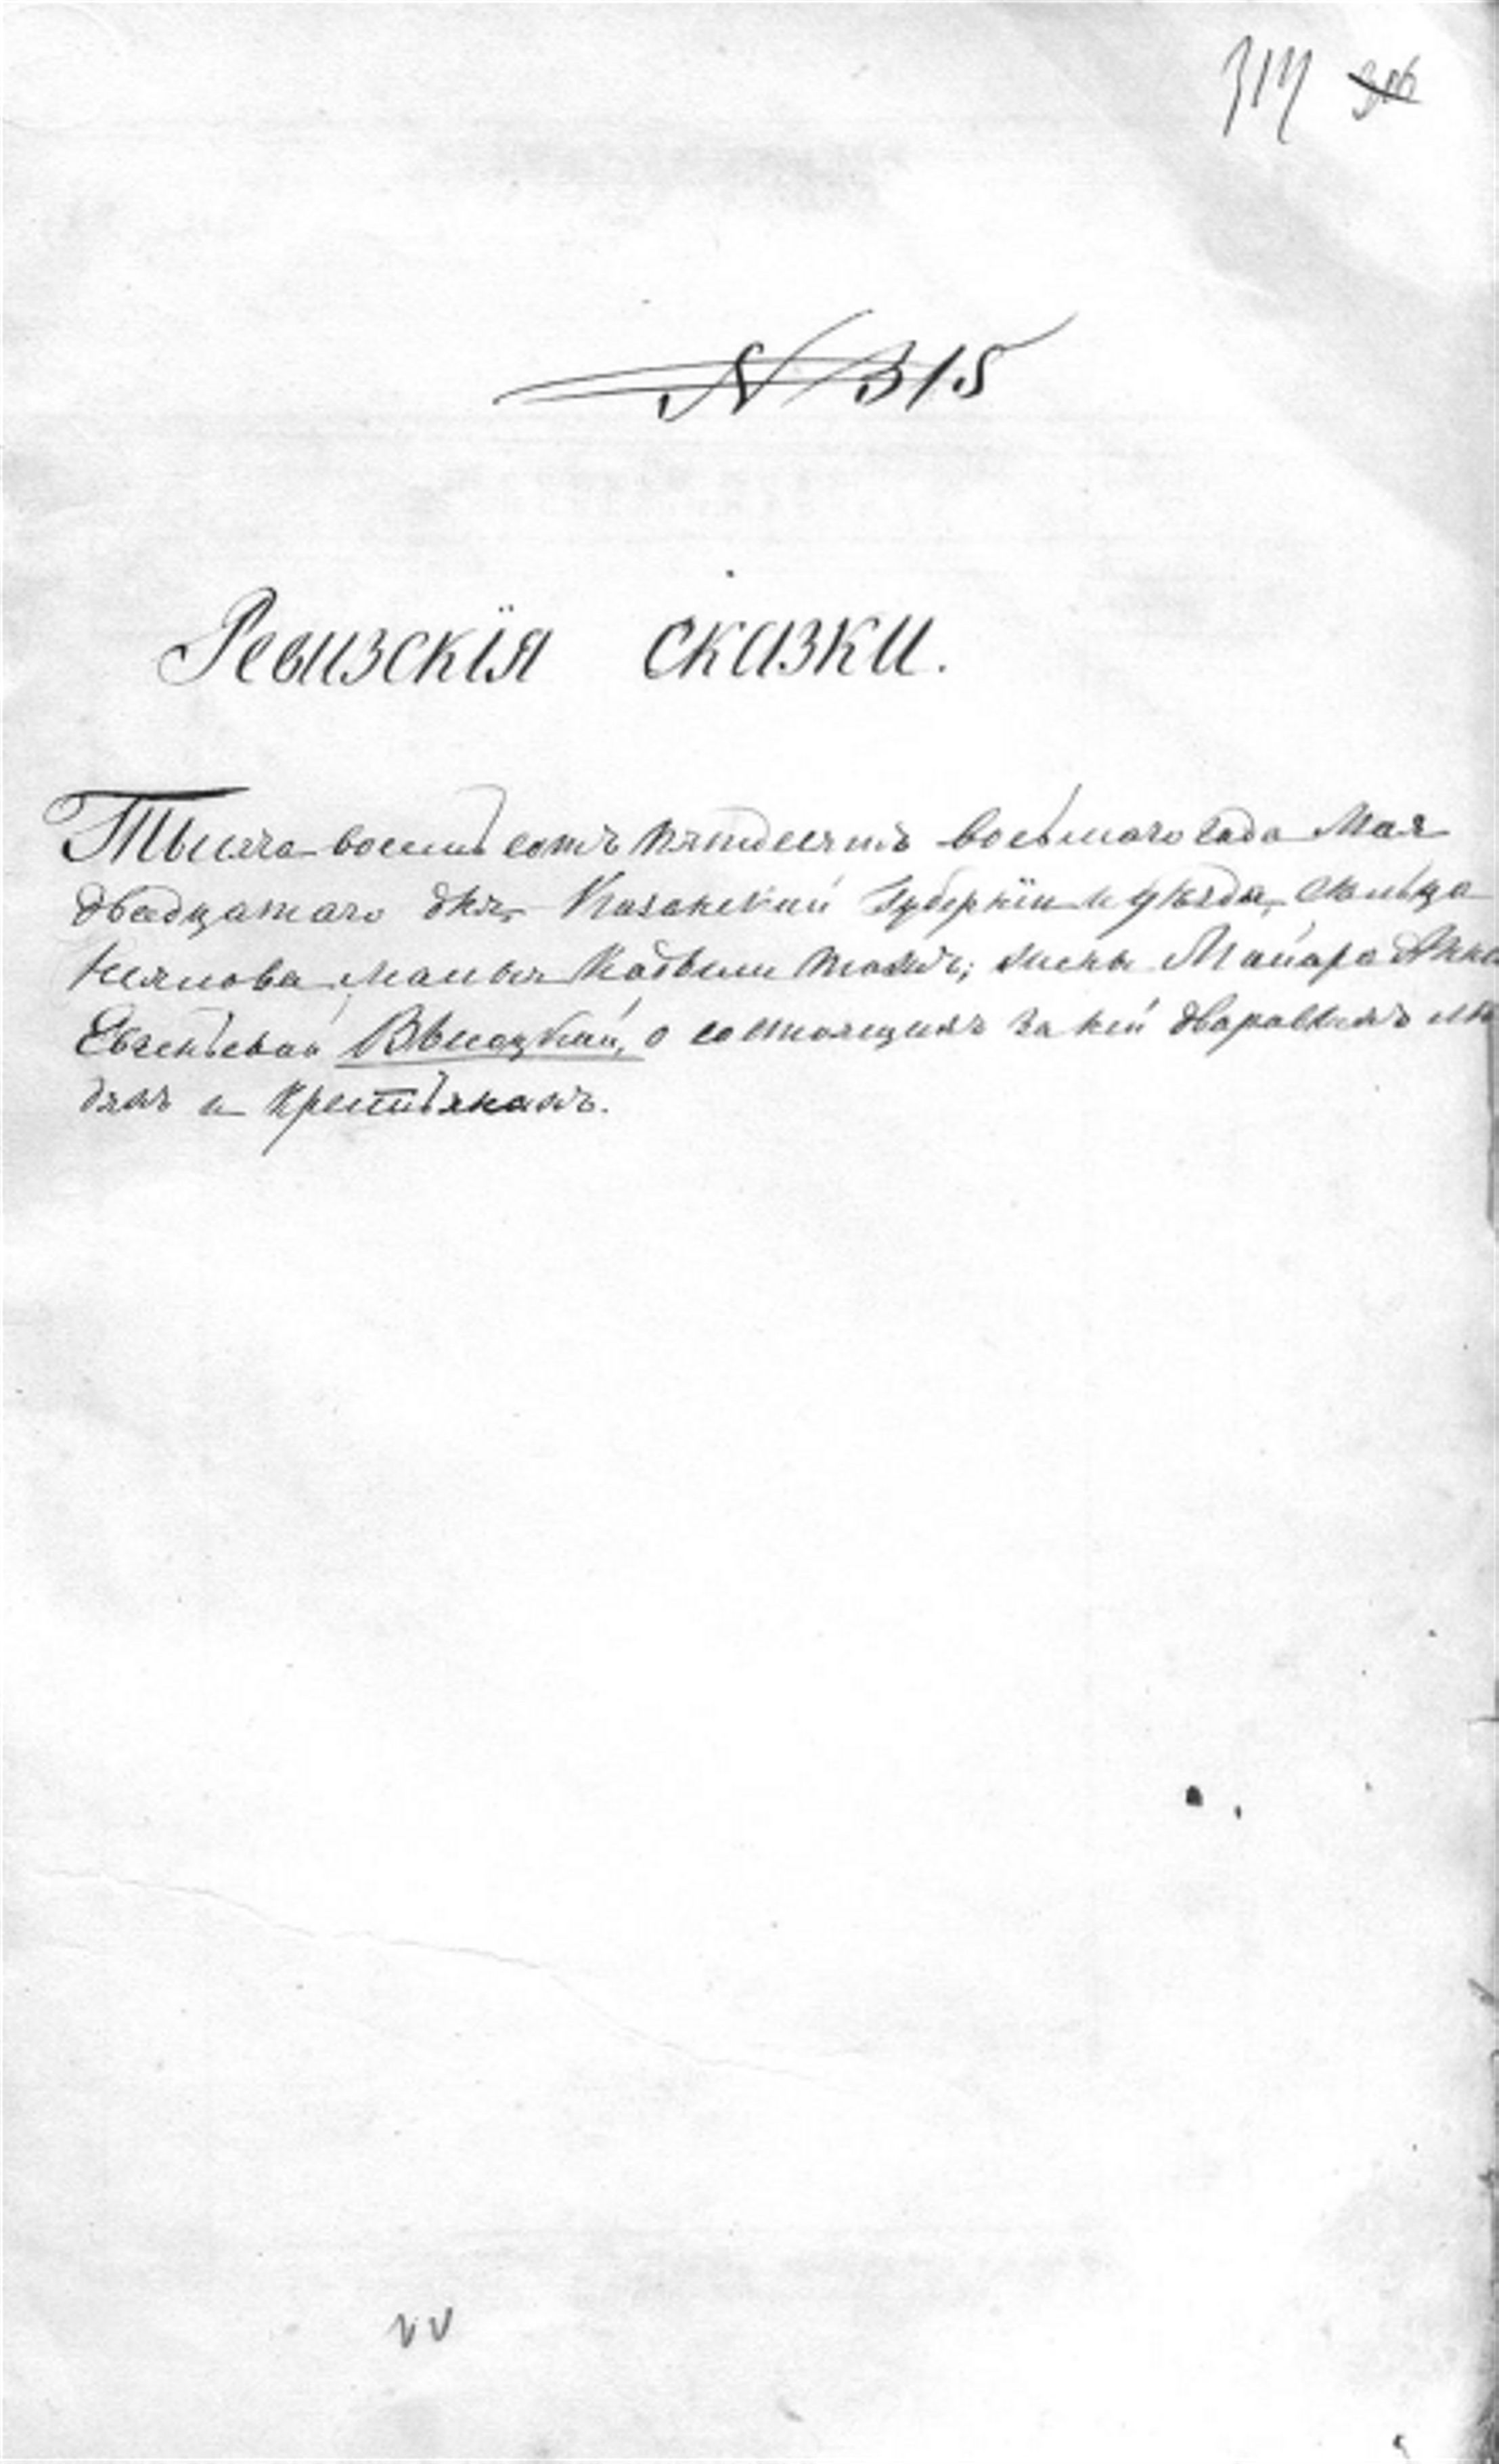 317 316
N 315
Ревизскія сказки.
Тысяча восемь сотъ пятдесятъ восьмаго года Мая
двадцатаго дня, Казанской Губерніи и уѣзда, сельца
Малыя Кабыли тожъ; жены Маіора Анны
Евгеньевой Высоцкой, о состоящихъ за ней дворовыхъ лю
дяхъ и крестьянахъ.